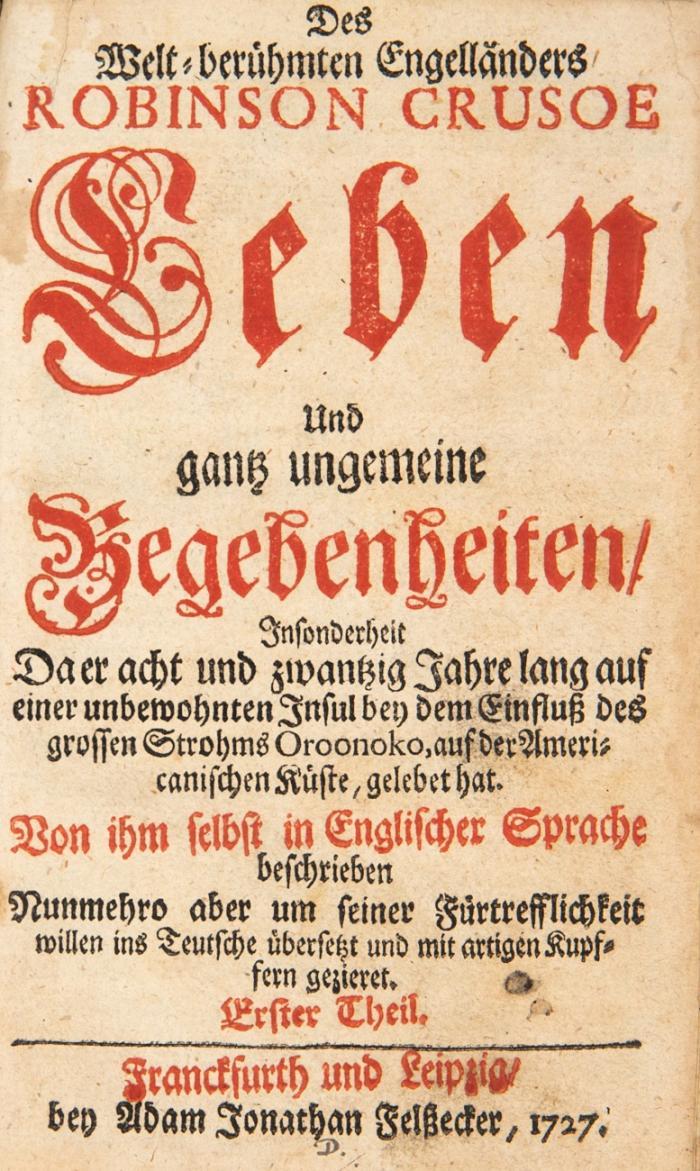 Des
Welt-berühmten Engelländers/
ROBINSON CRUSOE
Leben
Und
gantz ungemeine
Begebenheiten/
Insonderheit
Da er acht und zwantzig Jahre lang auf
einer unbewohnten Insul bey dem Einfluß des
grossen Strohms Oroonoko, auf der Ameri-
canischen Küste, gelebet hat.
Von ihm selbst in Englischer Sprache
beschrieben
Nunmehro aber um seiner Fürtrefflichkeit
willen ins Teutsche übersetzt und mit artigen Kupf-
fern gezieret.
Erster Theil.
Franckfurth und Leipzig/
bey Adam Jonathan Felßecker, 1727.
D.